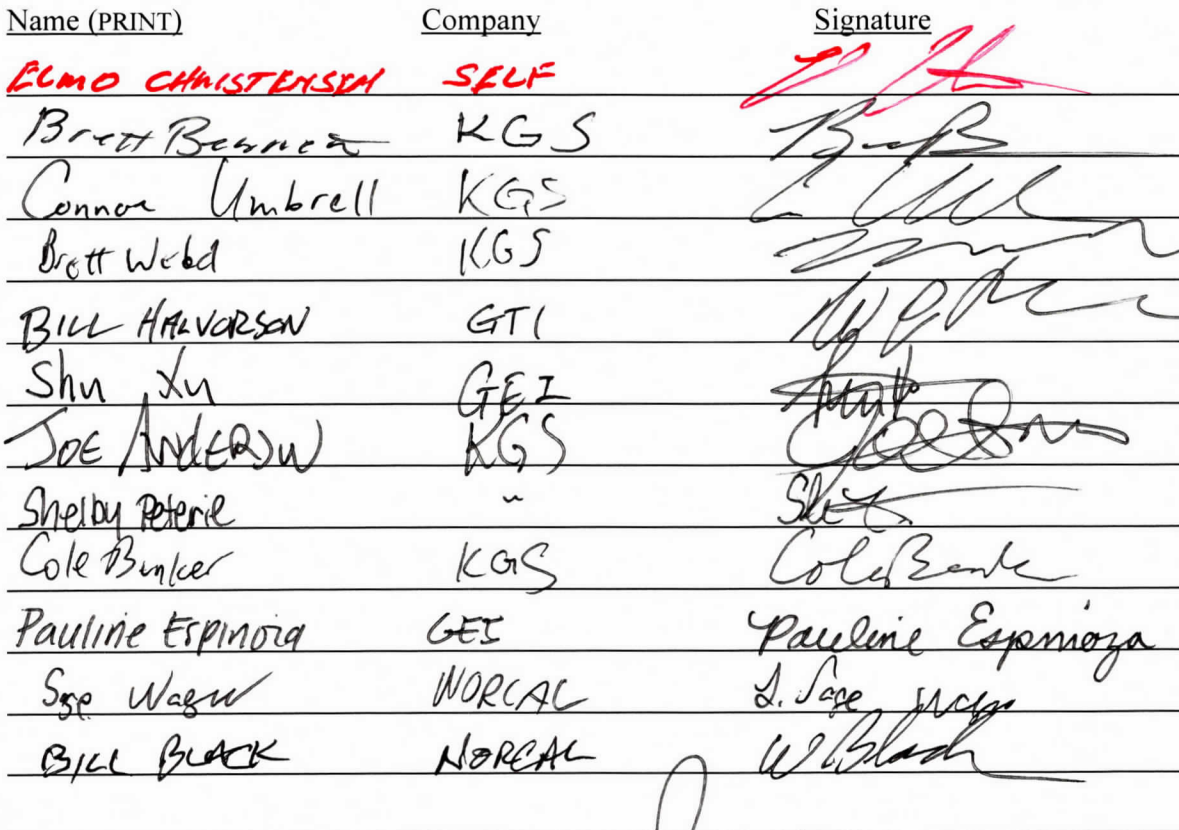 Name (PRINT) Company Signature
ELMO CHRISTENSEN SELF
Brett Bennett KGS
Connor Umbrell KGS
Brett Webd KGS
BILL HALVORSON GTI
Shu Xu GEI
JOE ANDERSON KGS
Shelby Peterie "
Cole Bunker KGS
Pauline Espinoza GEI Pauline Espinioza
Sage Wagner NORCAL S. Sage
BILL BLACK NORCAL W Black